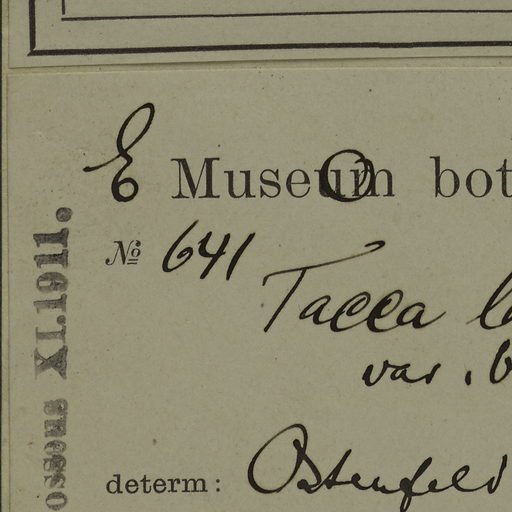 E Museum bot
O
№ 641
Tacca
var.
determ: Ostenfeld
XI.1911.